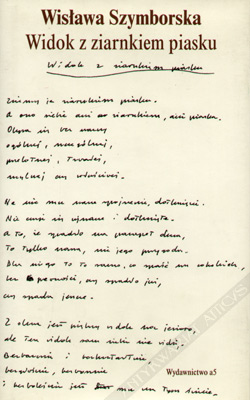 Wisława Szymborska
Widok z ziarnkiem piasku
Widok z ziarnkiem piasku
Zwiemy je ziarenkiem piasku.
A ono siebie ani ziarnkiem, ani piasku.
Obywa się bez nazwy
ogólnej, szczególnej,
przelotnej, trwałej,
mylnej czy właściwej.
Na nic mu nasze spojrzenie, dotknięcie.
Nie czuje się ujrzane i dotknięte.
A to, że spadło na parapet okna,
to tylko nasza, nie jego przygoda.
Dla niego to to samo, co spaść na cokolwiek,
bez pewności, czy spadło już,
czy spada jeszcze.
Z okna jest piękny widok na jezioro,
ale ten widok sam siebie nie widzi.
Bezbarwnie i bezkształtnie,
bezgłośnie, bezwonnie
i bezboleśnie jest mu na tym świecie.
Wydawnictwo a5